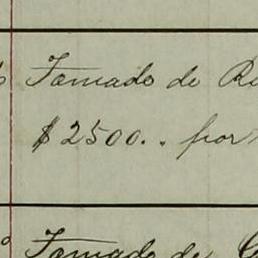 Tomado de
$2500.. por
Tomado de